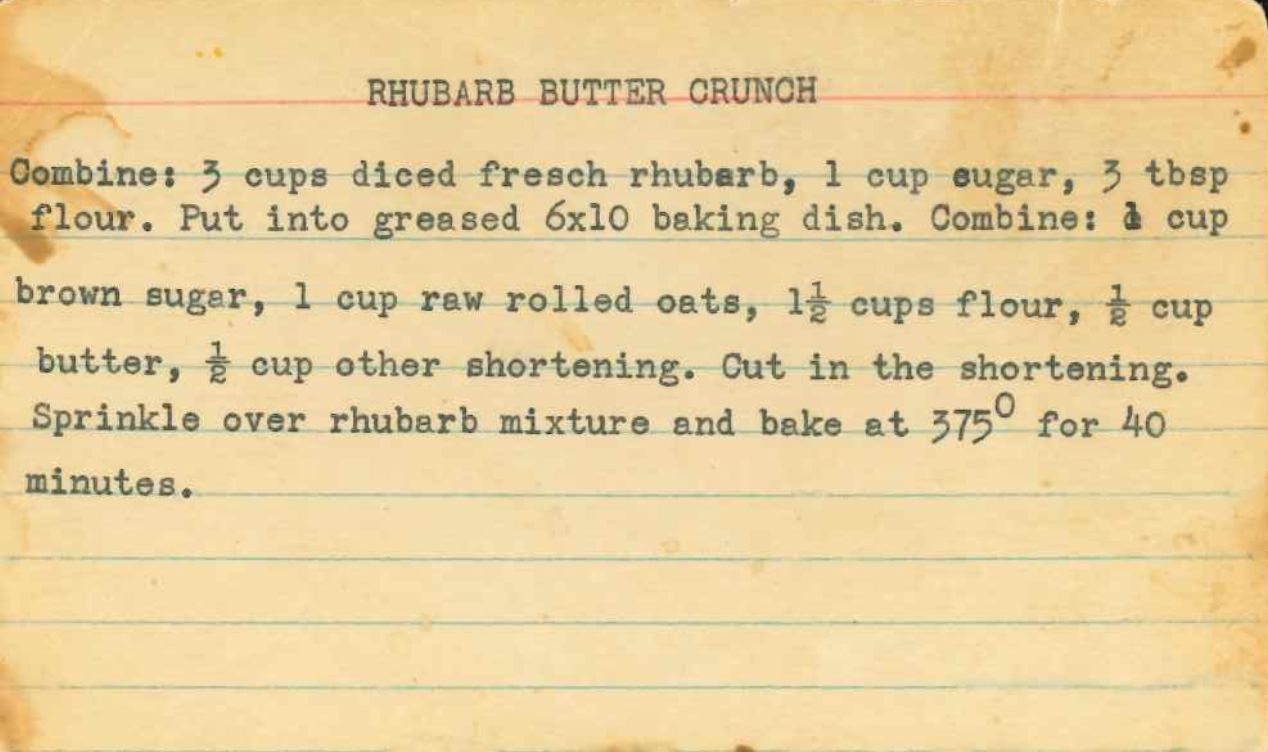 RHUBARB BUTTER CRUNCH
Combine: 3 cups diced fresch rhubarb, 1 cup sugar, 3 tbsp
flour. Put into greased 6x10 baking dish. Combine: 1 cup
brown sugar, 1 cup raw rolled oats, 1½ cups flour, ½ cup
butter, ½ cup other shortening. Cut in the shortening.
Sprinkle over rhubarb mixture and bake at 375° for 40
minutes.